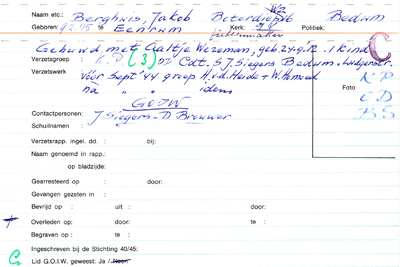 Naam etc.: Berghuis, Jakob Boterdiep Bedum
Geboren: te Eenrum Kerk: Politiek:
fietsenmaker
Gehuwd met Aaltje Wezeman, geb. 24.9.12. 1 kind
C
Verzetsgroep : K.P. (3) Cdt. S.J. Siegers Bedum
Verzetswerk : vóór Sept '44 groep H. v.d. Heide +
na " idem
KP
Foto OD
BS
GOIW
Contactpersonen: J. Siegers - D. Brouwer
Schuilnaam :
Verzetsrapp. ingel. dd. : bij:
Naam genoemd in rapp.:
op bladzijde:
Gearresteerd op : door:
Gevangen gezeten in :
Bevrijd op : uit : door:
Overleden op : door: te :
Begraven op : te :
Ingeschreven bij de Stichting 40/45:
G Lid G.O.I.W. geweest: Ja / Neen